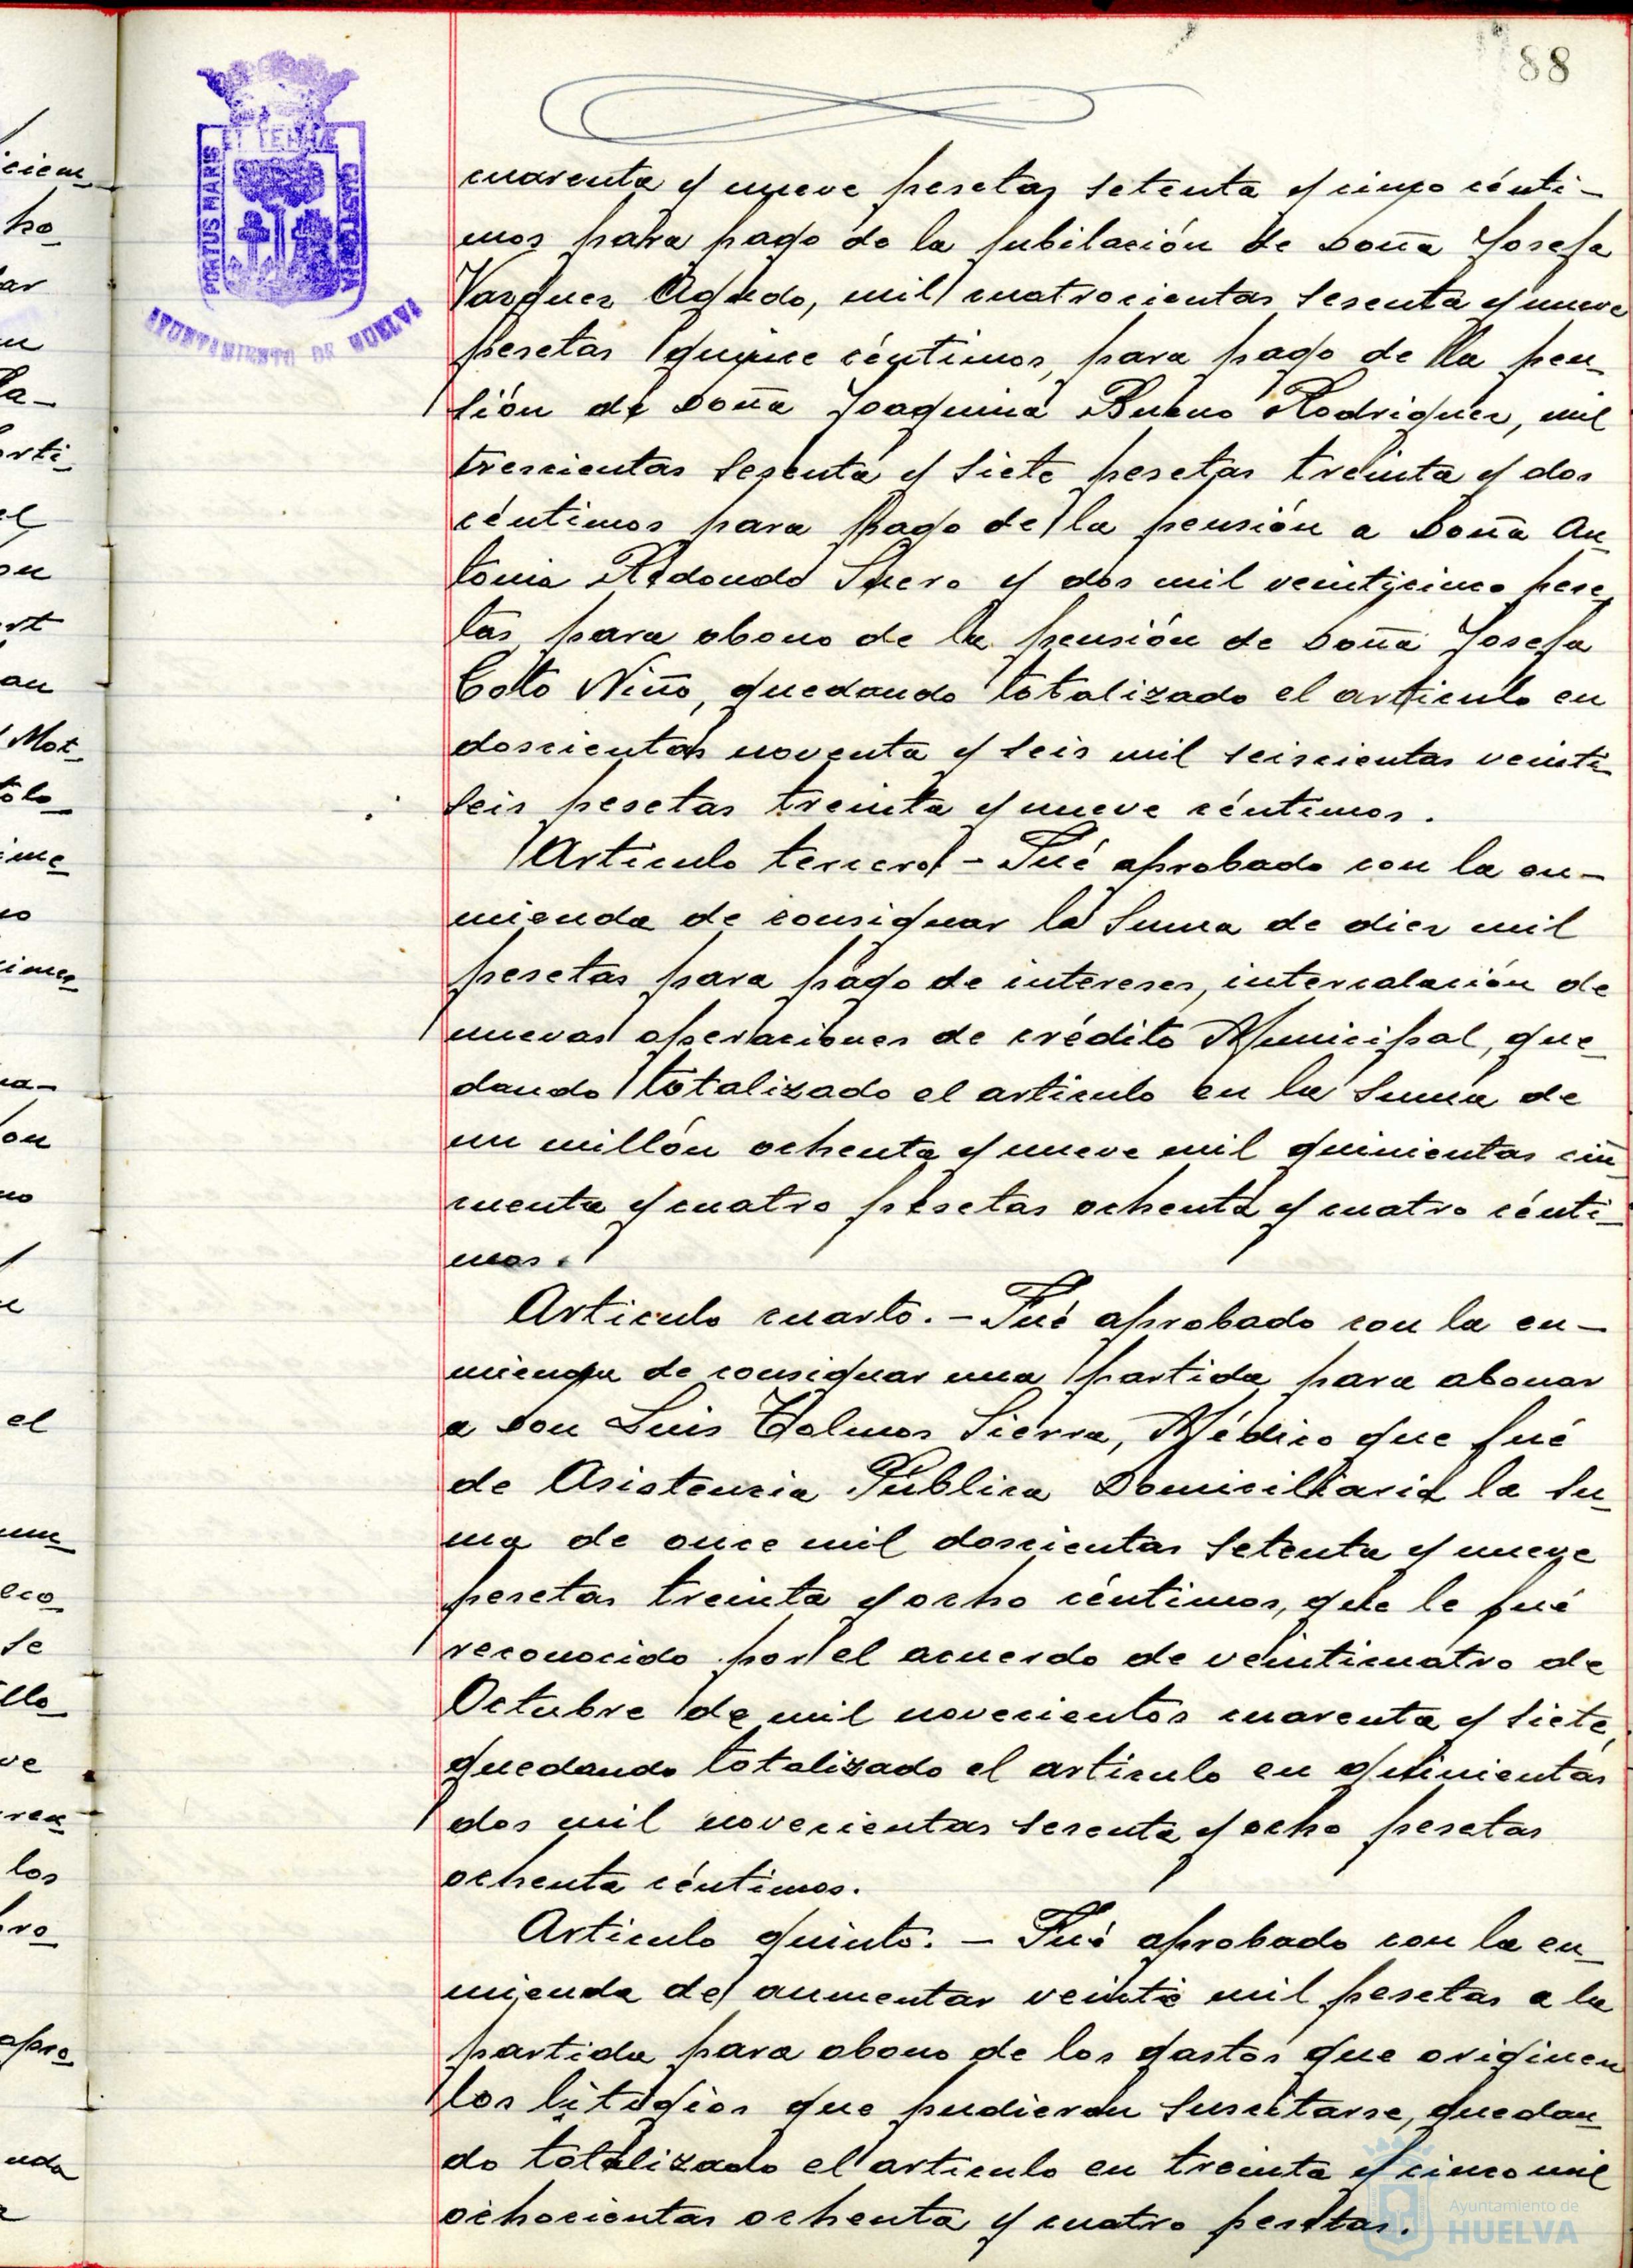 88
PORTUS MARIS
ET TERRAE
CUSTODIA
AYUNTAMIENTO DE HUELVA
cuarenta y nueve pesetas setenta y cinco cénti-
mos para pago de la jubilación de Doña Josefa
Vazquez Agudo, mil cuatrocientas sesenta y nueve
pesetas quince céntimos, para pago de la pen-
sión de Doña Joaquina Bueno Rodriguez, mil
trescientas sesenta y siete pesetas treinta y dos
céntimos para pago de la pensión a Doña An-
tonia Redondo Suero y dos mil veinticinco pese-
tas para abono de la pensión de Doña Josefa
Coto Niño, quedando totalizado el articulo en
doscientas noventa y seis mil seiscientas veinti-
seis pesetas treinta y nueve céntimos.
Articulo tercero - Fué aprobado con la en-
mienda de consignar la suma de diez mil
pesetas para pago de intereses, intercalación de
nuevas operaciones de crédito Municipal, que-
dando totalizado el articulo en la suma de
un millón ochenta y nueve mil quinientas cin-
cuenta y cuatro pesetas ochenta y cuatro cénti-
mos.
Articulo cuarto. - Fué aprobado con la en-
mienda de consignar una partida para abonar
a Don Luis Tolmos Sierra, Médico que fué
de Asistencia Pública Domiciliaria la su-
ma de once mil doscientas setenta y nueve
pesetas treinta y ocho céntimos, que le fué
reconocido por el acuerdo de veinticuatro de
Octubre de mil novecientos cuarenta y siete,
quedando totalizado el articulo en quinientas
dos mil novecientas sesenta y ocho pesetas
ochenta céntimos.
Articulo quinto. - Fué aprobado con la en-
mienda de aumentar veinte mil pesetas a la
partida para abono de los gastos que originen
los litigios que pudieran suscitarse, quedan-
do totalizado el articulo en treinta y cinco mil
ochocientas ochenta y cuatro pesetas.
Ayuntamiento de
HUELVA